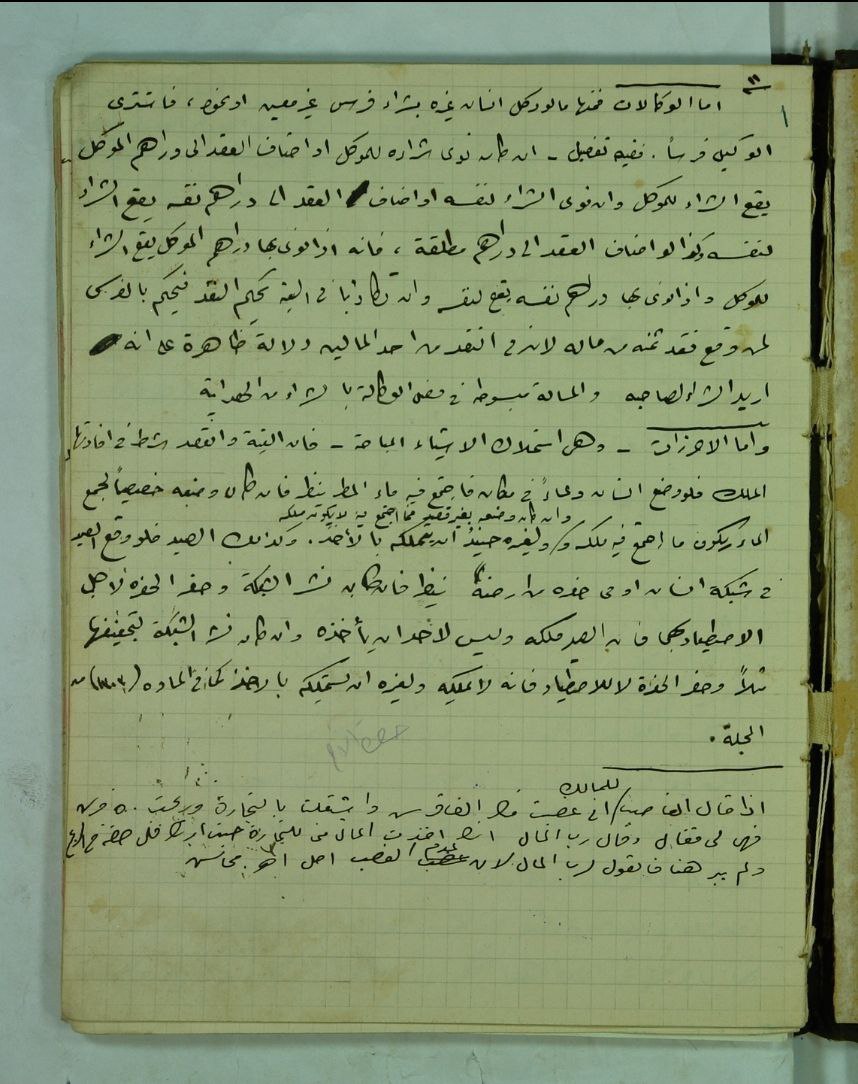 ١١
١
اما الوكالات فمنها ما لو وكل انسان غيره بشراء فرس غير معين او نحوه، فاشترى
الوكيل فرساً. ففيه تفصيل - ان كان نوى شراءه للموكل او اضاف العقد الى دراهم الموكل
يقع الشراء للموكل وان نوى الشراء لنفسه او اضاف العقد الى دراهم نفسه يقع الشراء
لنفسه وكذا لو اضاف العقد الى دراهم مطلقة، فانه اذا نوى بها دراهم الموكل يقع الشراء
للموكل واذا نوى بها دراهم نفسه يقع لنفسه وان تكاذبا في النية يحكم النقد فيحكم بالفرس
لمن وقع نقد ثمنه من ماله لان في النقد من احد المالين دلالة ظاهرة على انه
اريد الشراء لصاحبه والمسألة مبسوطة في فصل الوكالة بالشراء من الهداية
واما الاحرازات - وهي استملاك الاشياء المباحة - فان النية والقصد شرط في افادتها
الملك فلو وضع انسان وعاءً في مكان فاجتمع فيه ماء المطر ينظر فان كان وضعه خصيصاً لجمع
وان كان وضعه بغير قصد فما اجتمع فيه لا يكون ملكه
الماء يكون ما اجتمع فيه ملكه و/ ولغيره حينئذ ان يتملكه بالاخذ. وكذلك الصيد فلو وقع الصيد
في شبكة انسان او في حفرة من ارضه ينظر فان كان نشر الشبكة وحفر الحفرة لاجل
الاصطياد بهما فان الصيد ملكه وليس لاحد ان يأخذه وان كان نشر الشبكة لتجفيفها
مثلاً وحفر الحفرة لا للاصطياد فانه لا يملكه ولغيره ان يستملكه بالاخذ كما في المادة (١٣٠٣) من
المجلة.
للمالك
اذا قال الغاصب/ اني غصبت منك الف قرش واشتغلت بالتجارة وربحت ٥٠ قرش
فهي لي فقال وقال رب المال انك اخذت المال مني للتجارة
ولم يبرهنا فالقول لرب المال لان عدم الغصب اصل اهـ